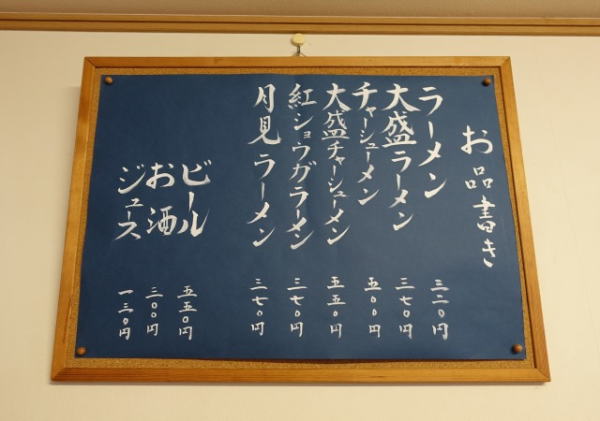 お品書き
ラーメン 三二〇円
大盛ラーメン 三七〇円
チャーシューメン 五〇〇円
大盛チャーシューメン 五五〇円
紅ショウガラーメン 三七〇円
月見ラーメン 三七〇円
ビール 五五〇円
お酒 三〇〇円
ジュース 一三〇円